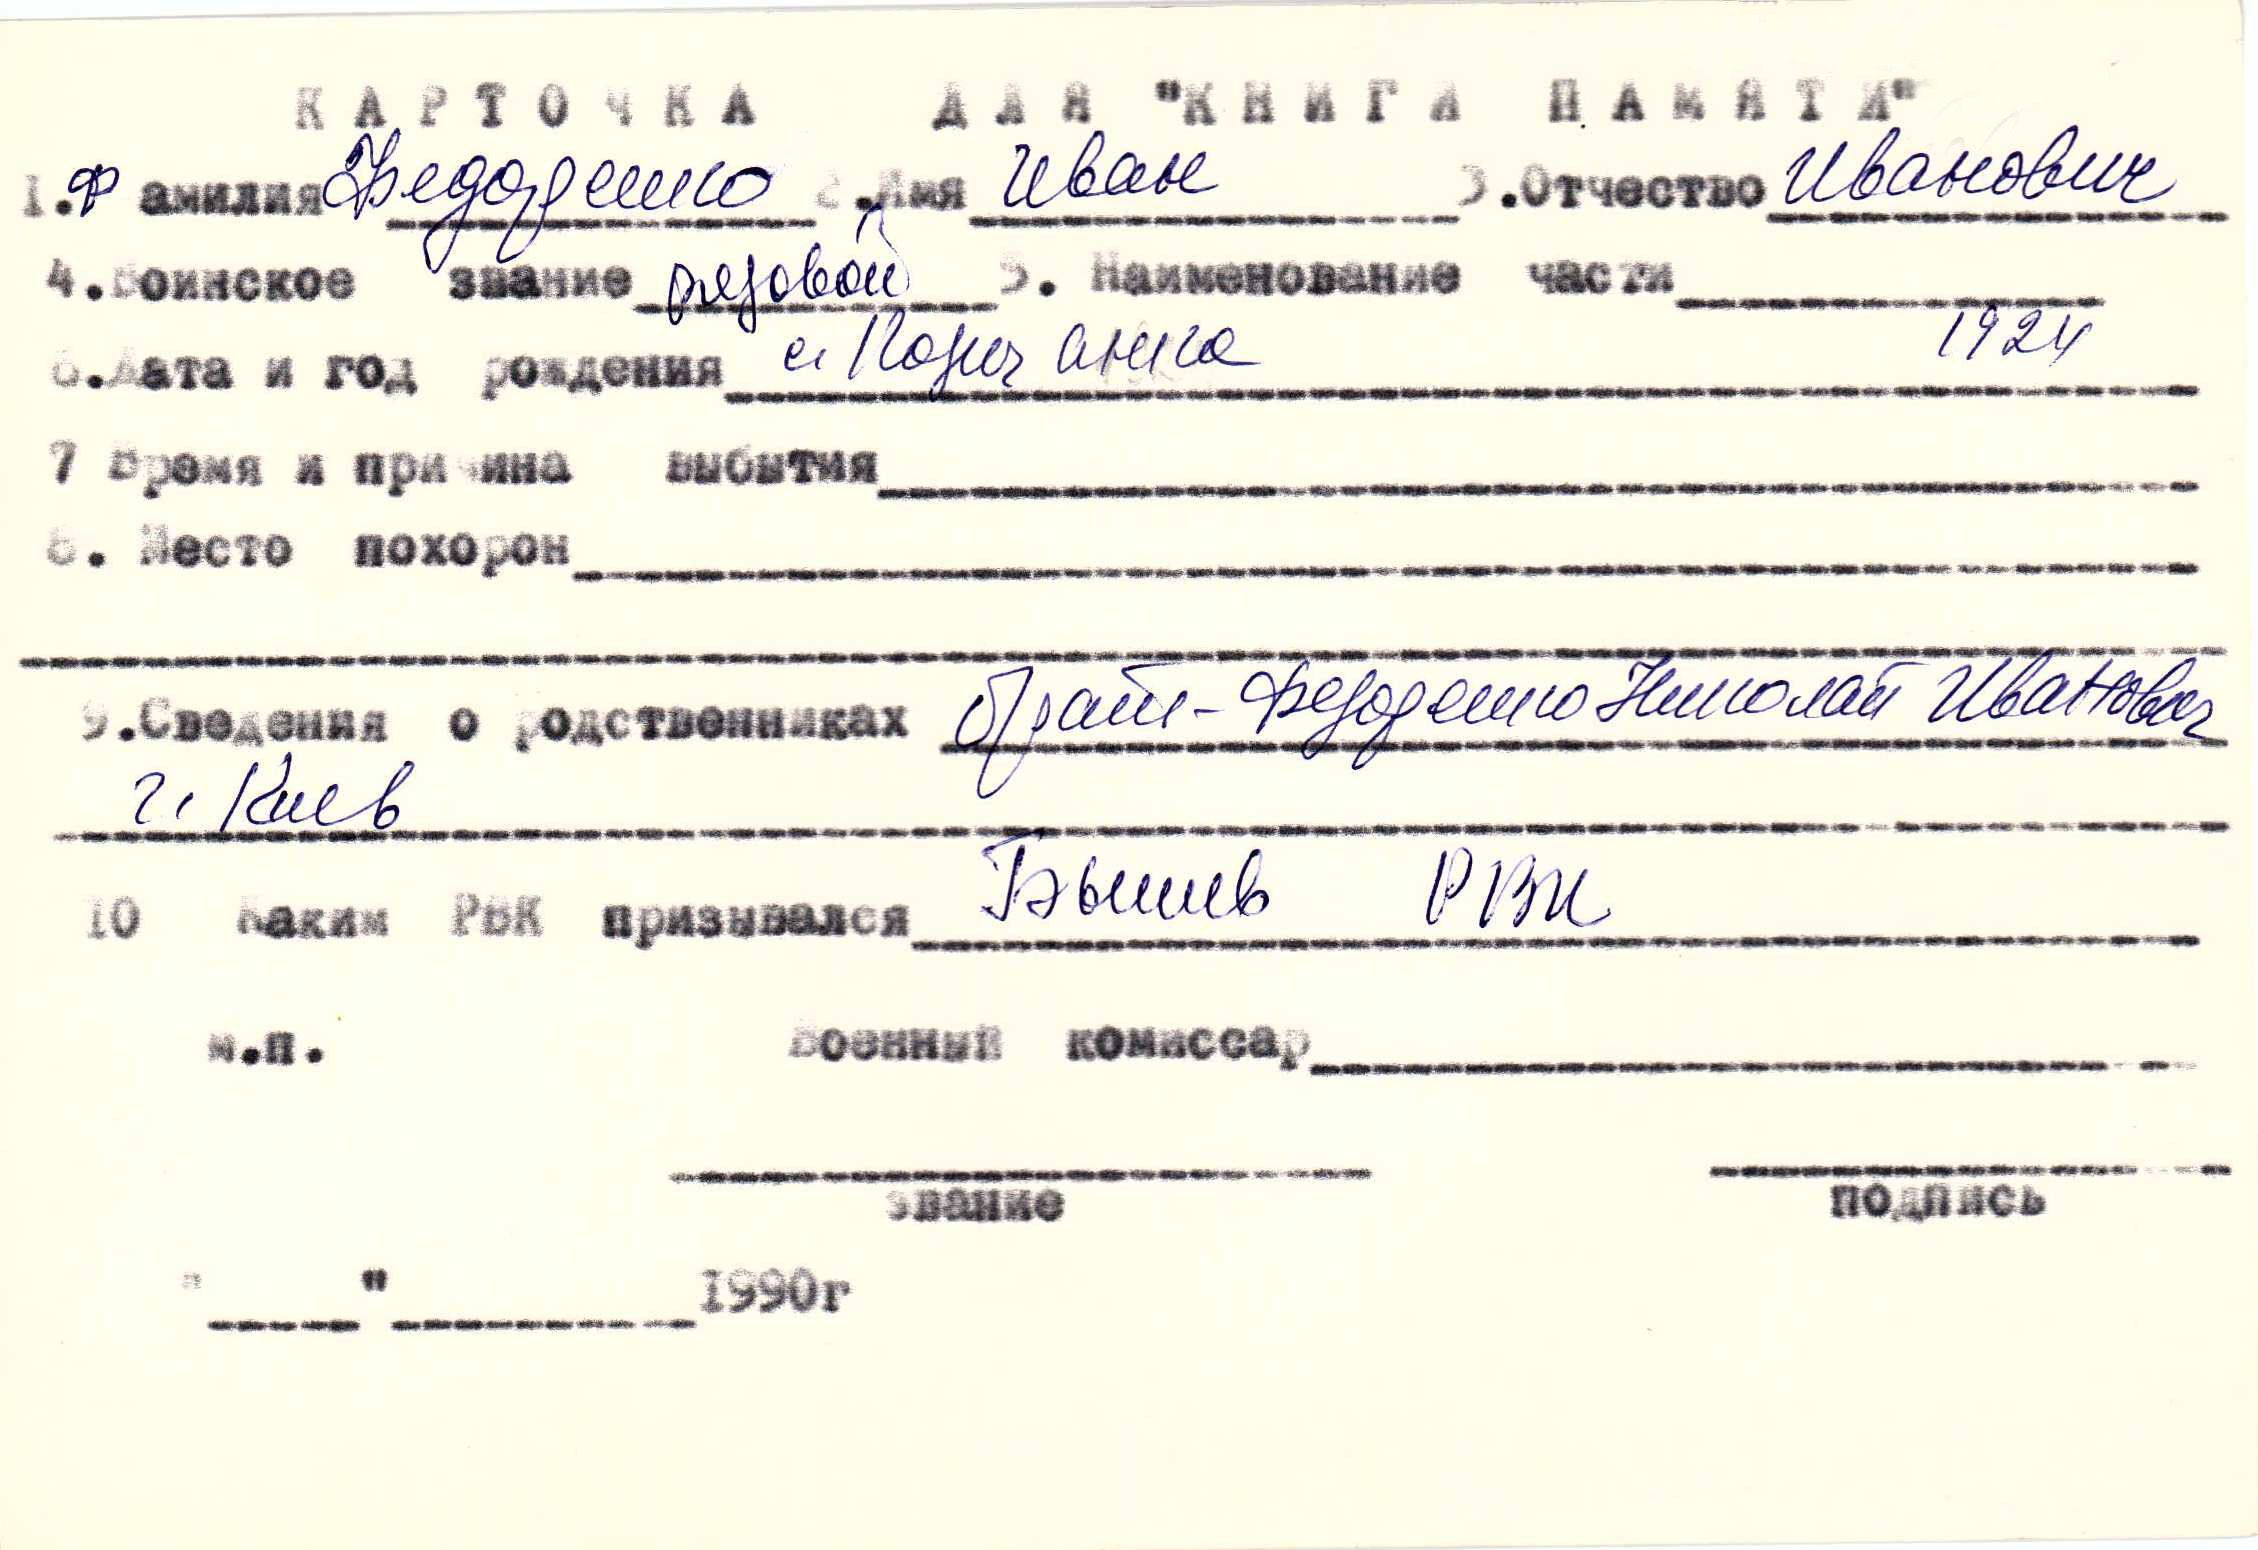 КАРТОЧКА ДЛЯ "КНИГА ПАМЯТИ"
1.Фамилия Федоренко 2.Имя Иван 3.Отчество Иванович
4.Воинское звание рядовой 5. Наименование части
6.Дата и год рождения с. 1924
7 Время и причина выбытия
8. Место похорон
9.Сведения о родственниках брат - Федоренко Николай Иванович
г. Киев
10 Каким РВК призывался Бышев РВК
м.п. Военный комиссар
звание подпись
" " 1990г